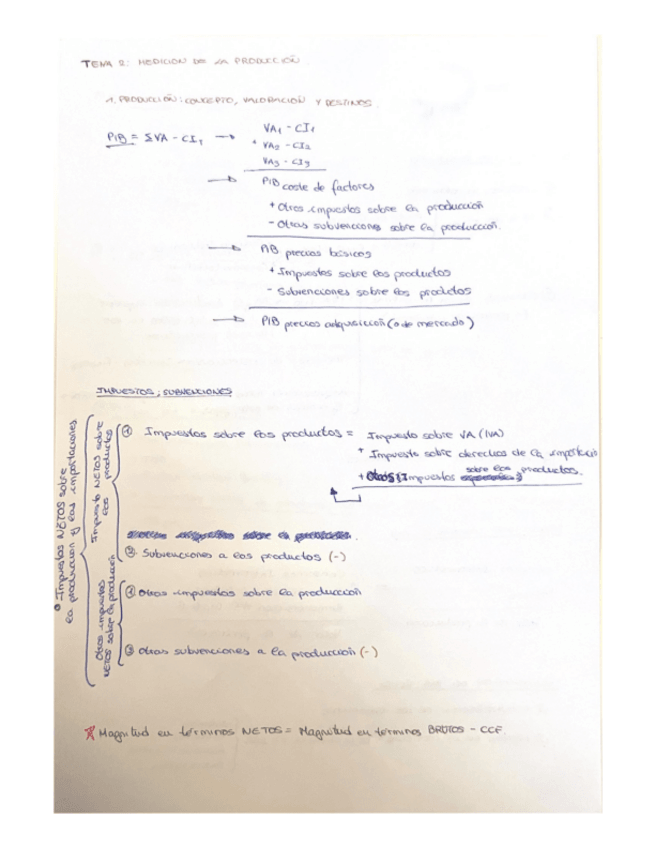 TEMA 2: MEDICION DE LA PRODUCCIÓN.
1. PRODUCCIÓN: CONCEPTO, VALORACION Y DESTINOS.
PIB = ΣVA - CI, → VA1 - CI1
+ VA2 - CI2
VA3 - CI3
→ PIB coste de factores
+ Otros impuestos sobre la producción
- Otras subvenciones sobre la producción.
→ PIB precios básicos
+ Impuestos sobre los productos
- Subvenciones sobre los productos
→ PIB precios adquisición (o de mercado)
IMPUESTOS; SUBVENCIONES
• Impuestos NETOS sobre la producción y las importaciones
Impuesto NETOS sobre los productos
① Impuestos sobre los productos = Impuesto sobre VA (IVA)
+ Impuesto sobre derechos de la importación
+ Otros Impuestos sobre los productos.
② Subvenciones a los productos (-)
Otros impuestos NETOS sobre la producción
① Otros impuestos sobre la producción
② Otras subvenciones a la producción (-)
Magnitud en términos NETOS = Magnitud en términos BRUTOS - CCF.